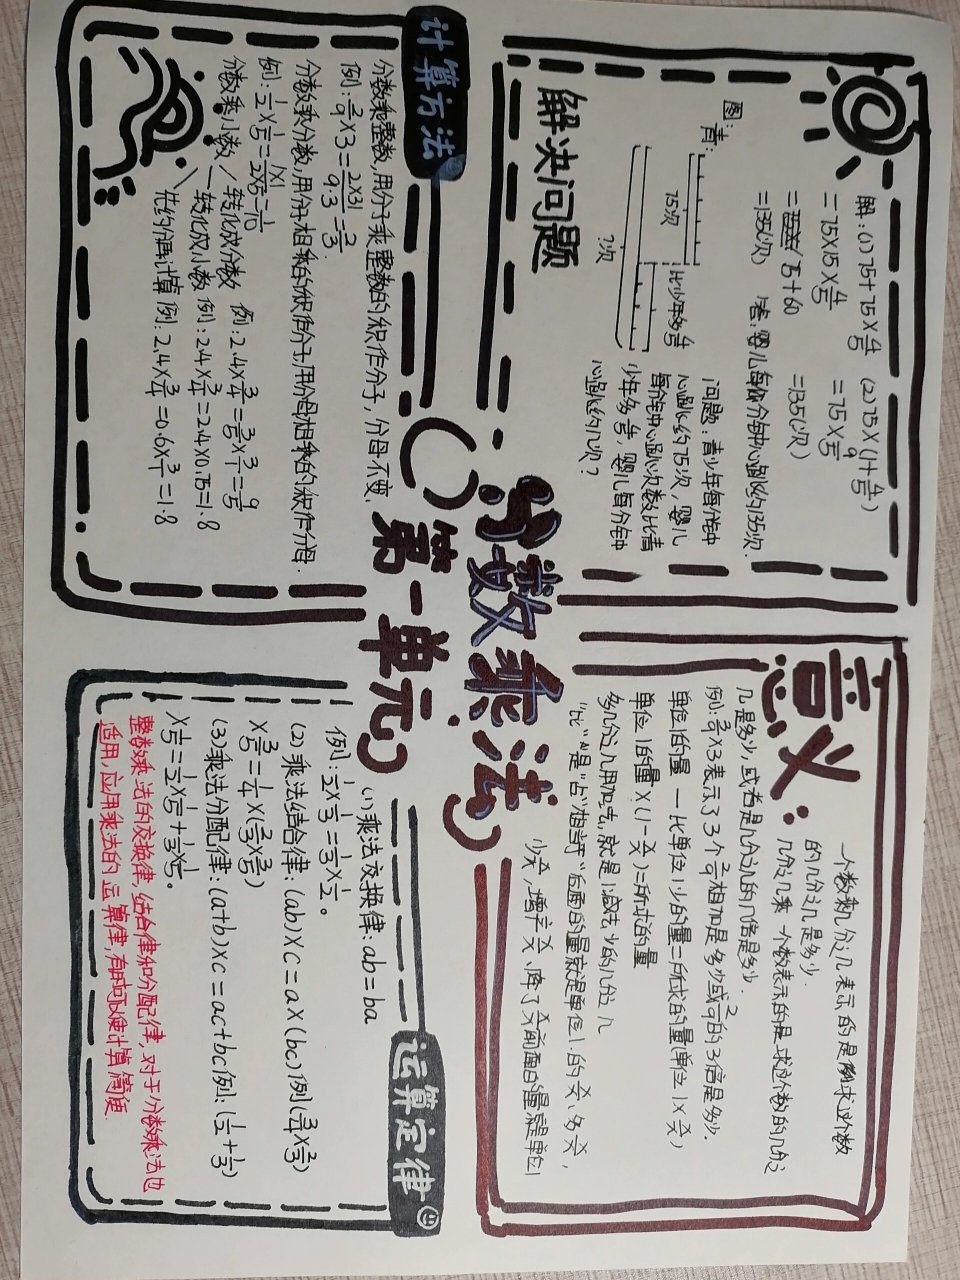 分数乘法
(第一单元)
解决问题
解:(1)75+75×4/5
=75×15×4/5
=75+60
=135(次)
(2)75×(1+4/5)
=75×9/5
=135(次)
答:婴儿每分钟心跳约135次.
图:
青:
75次
比少年多4/5
?次
问题:青少年每分钟
心跳约75次,婴儿
每分钟心跳次数比青
少年多4/5,婴儿每分钟
心跳约几次?
意义:
一个数乘几分之几表示的是求这个数
的几分之几是多少.
几分之几乘一个数表示的是求这个数的几分之
几是多少,或者是几分之几的几倍是多少.
例:2/9×3表示了3个2/9相加是多少或2/9的3倍是多少.
单位1的量-比单位1少的量=所求的量(单位1×x/x)
单位1的量×(1-x/x)=所求的量
多几分之几用加法,就是1减去少的几分之几
"比""是"占"相当于"后面的量就是单位1的x/x、多x/x,
少x/x,增产x/x、降了x/x前面的量就是单位1
计算方法
分数乘整数,用分子乘整数的积作分子,分母不变.
例:2/9×3=2×31/9.3=2/3.
分数乘分数,用分子相乘的积作分子,用分母相乘的积作分母.
例:1/2×1/5=1×1/2×5=1/10
分数乘小数
转化成分数 例:2.4×3/4=3/5×3/1=9/5
转化成小数 例:2.4×3/4=2.4×0.75=1.8
先约分再计算 例:2.4×3/4=0.6×3/1=1.8
运算定律
(1)乘法交换律:ab=ba
例:1/2×1/3=1/3×1/2。
(2)乘法结合律:(ab)×c=a×(bc)例(3/4×2/3)
×3/5=1/4×(2/3×3/5)
(3)乘法分配律:(a+b)×c=ac+bc例:(1/2+1/3)
×1/5=1/2×1/5+1/3×1/5。
整数乘法的交换律,结合律和分配律,对于分数乘法也
适用,应用乘法的运算律,有时可以使计算简便.